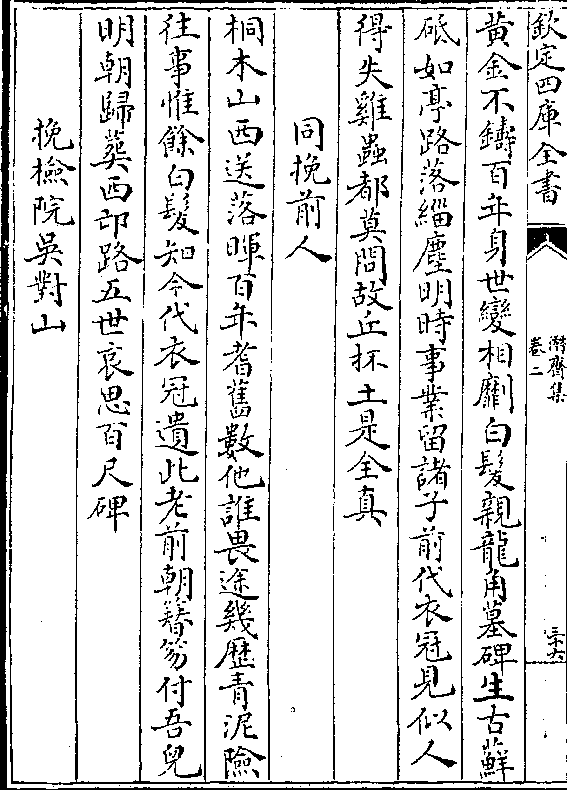 欽定四庫全書
潛齋集
卷二
三十六
黃金不鑄百年身世變相劘白髪親龍角墓碑生古蘚
砥如亭路落緇塵明時事業留諸子前代衣冠見似人
得失雞蟲都莫問故丘抔土是全真
同挽前人
桐木山西送落暉百年耆舊數他誰畏途幾歷青泥險
往事惟餘白髪知今代衣冠遺此老前朝簪笏付吾兒
明朝歸葬西邙路五世哀思百尺碑
挽檢院吳對山